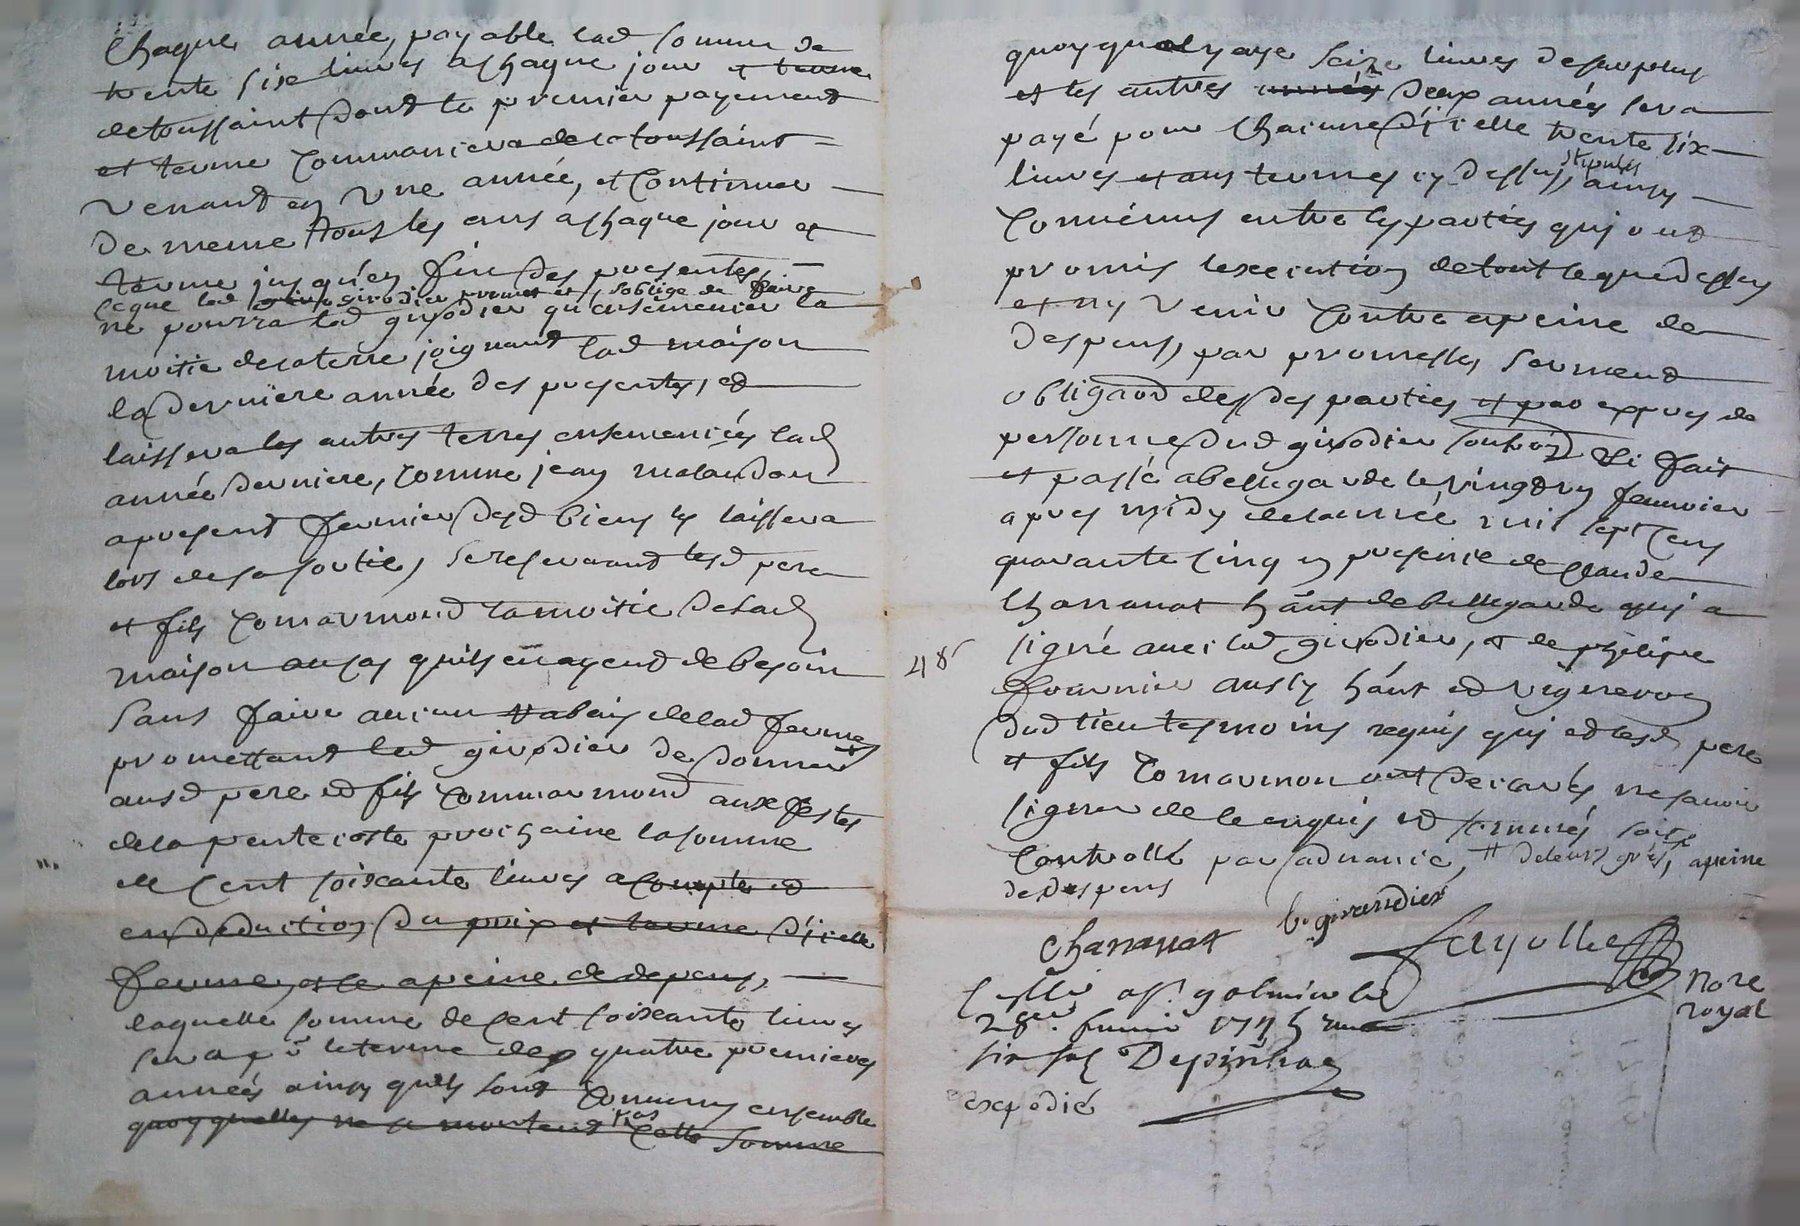 Chaque année, payable lad somme de
trente six livres a chaque jour et terme
de toussaint dont le premier payement
et terme commancera de la toussaint
venant en une année, et continuer
de meme tous les ans a chaque jour et
terme jusqu'en fin des presentes
ce que led girodier promet et s'oblige de faire
ne pourra led girodier qu'ensemencer la
moitie de la terre joignant lad maison
la derniere année des presentes, et
laissera les autres terres ensemencées lad
année derniere, comme jean malardon
apresent fermier desd biens les laissera
lors de sa sortie, se reservant lesd pere
et fils comarmond la moitie de lad
maison au cas quils en ayent de besoin
sans faire aucun rabais de lad ferme
promettant led girodier de donner
ausd pere et fils commarmond aux festes
de la pentecoste prochaine la somme
de cent soixante livres a compte et
en deduction du prix et terme d'icelle
ferme, et ce a peine de depens,
laquelle somme de cent soixante livres
sera pr le terme des quatre premieres
années ainsy quils sont convenus ensemble
quoyquelles ne se montent pas cette somme
quoyqu'il y aye seize livres de surplus
et les autres années deux années sera
payé pour chacune d'icelle trente six
livres et aux termes cy dessus stipulés ainsy
convenus entre les parties qui ont
promis l'execution de tout le que dessus
et ny venir contre a peine de
despens, par promesse, serment
obligaon desd parties et par expres de
personne dud girodier soubmon &c fait
et passé a bellegarde le vingt un fevrier
apres midy de l'année mil sept cens
quarante cinq en presence de Claude
Charranat hãnt de bellegarde qui a
signé avec led girodier, et de phelipe
fournier aussy hãnt et vigneron
dud lieu tesmoins requis qui et lesd pere
et fils Comarmon ont declarés ne scavoir
signer de ce enquis et sommés soit
Controllé par advance, # de leurs grés, a peine
de despens
48
Charranat
b. girerdier
Fayolle
Nore
royal
Collé a St galmier le
28e. fevrier 1745 recu
six sols Depinhac
expedié